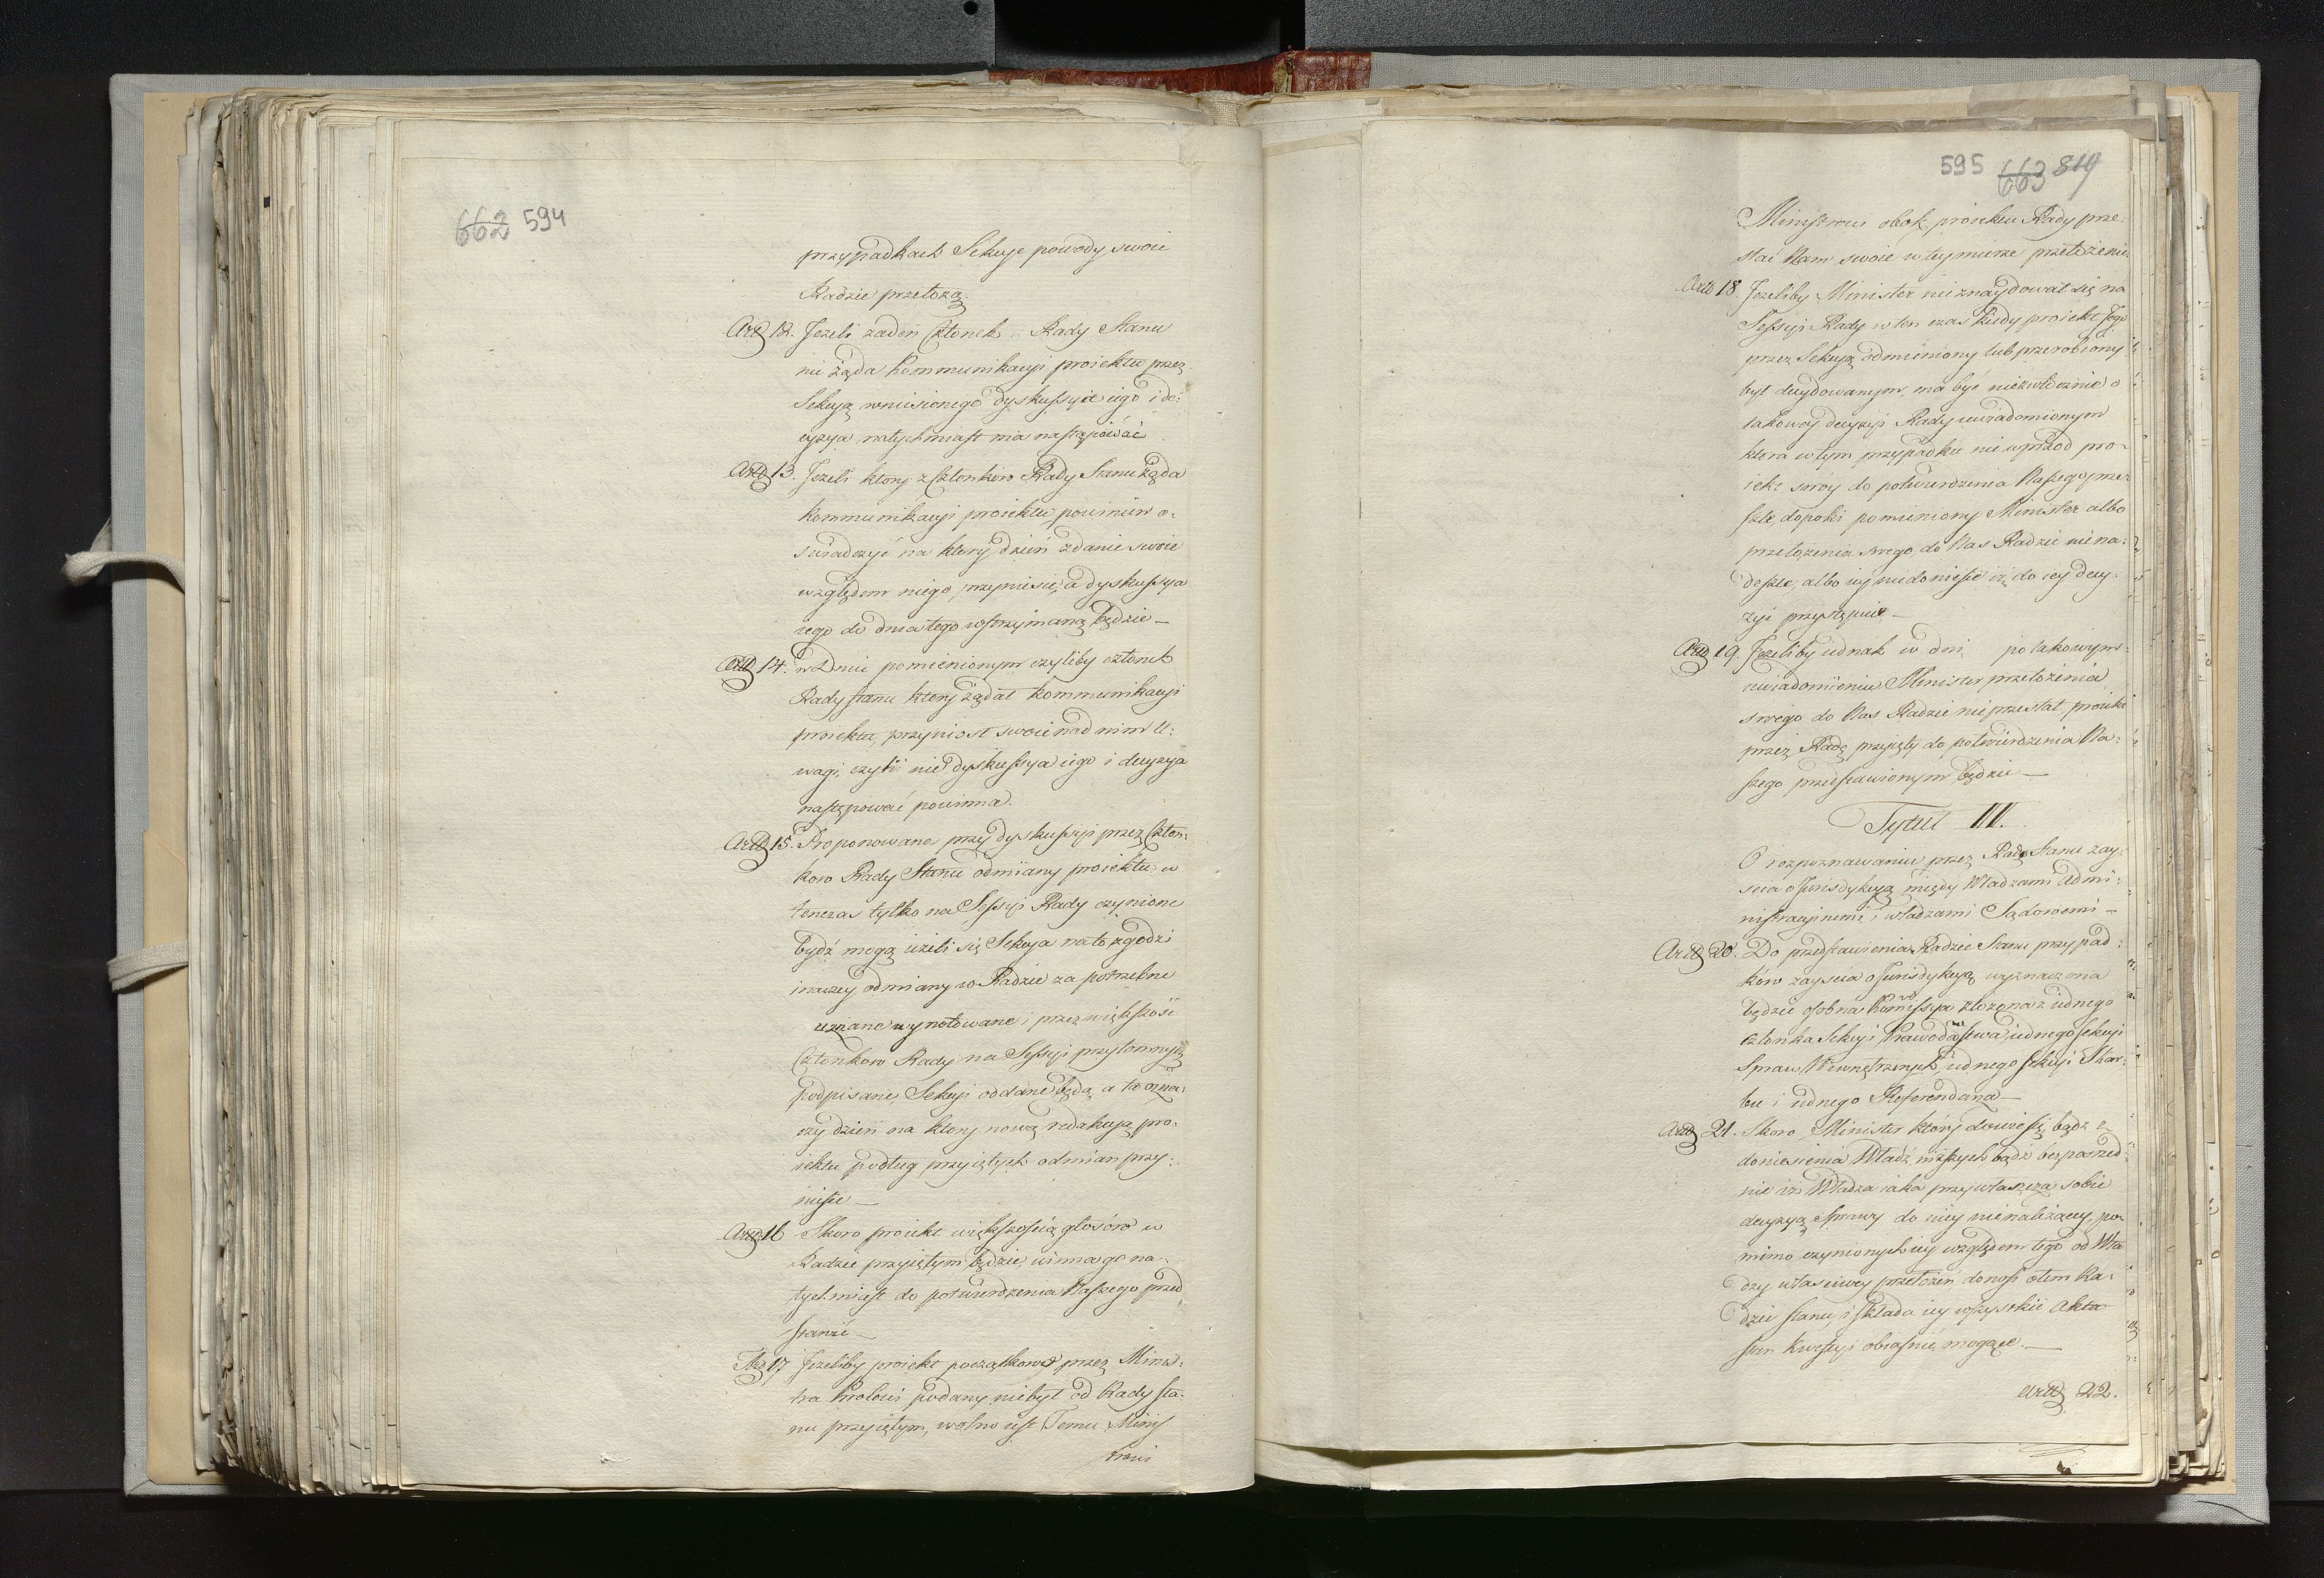 662 594
przypadkach Sekcye powody swoie
Radzie przełożą.
Artt 12. Jeżeli żaden Członek Rady Stanu
nie żąda kommunikacyi proiektu przez
Sekcyą wniesionego dyskussyia iego i de:
cyzya natychmiast ma nastąpować
Artt 13. Jeżeli ktory z Członkow Rady Stanu żąda
kommunikacyi proiektu, powinien o:
świadczyć na ktory dzień zdanie swoie
względem niego przyniesie, a dyskussya
iego do dnia tego wstrzymaną będzie —
Artt 14. w Dniu pomienionym czyliby członek
Rady Stanu ktory żądał kommunikacyi
proiektu, przyniosł swoie nad nim U:
wagi, czyli nie dyskussya iego i decyzya
następować powinna.
Artt 15. Proponowane przy dyskussyi przez Człon:
kow Rady Stanu odmiany proiektu w
tenczas tylko na Sessyi Rady czynione
bydź mogą ieżeli się Sekcya na to zgodzi
inaczey odmiany w Radzie za potrzebne
uznane wynotowane i przez większość
Członkow Rady na Sessyi przytomnych
podpisane, Sekcyi oddane będą, a ta ozna:
czy dzień na ktory nową redakcyą pro:
iektu podług przyiętych odmian przy:
niesie —
Artt 16 Skoro proiekt większością głosów w
Radzie przyiętym będzie, winna go na:
tychmiast do potwierdzenia Naszego przed
stawić —
Art 17 Jeżeliby proiekt początkowo przez Minis:
tra Krolowi podany niebył od Rady Sta:
nu przyiętym, wolno iest Temu Minis
trowi
595 663 819
Ministrowi obok proiektu Rady prze:
słać Nam swoie w tey mierze przełożenie.
Artt 18. Jeżeliby Minister nie znaydował się na
Sessyi Rady w ten czas kiedy proiekt Jego
przez Sekcyą odmieniony lub przerobiony
był decydowanym, ma być niezwłocznie o
takowey decyzyi Rady uwiadomionym
ktora w tym przypadku nie wprzod pro:
iekt swoy do potwierdzenia Naszego prze:
szle, dopoki pomieniony Minister albo
przełożenia swego do Nas Radzie nie na:
deszle, albo iey nie doniesie iż do iey decy:
zyi przystępuie —
Artt 19. Jeżeliby iednak w dni po takowym
uwiadomieniu Minister przełożenia
swego do Nas Radzie nie przesłał, proiekt
przez Radę przyięty do potwierdzenia Na:
szego przedstawionym będzie —
Tytuł III.
O rozpoznawaniu przez Radę Stanu zay:
ścia o Jurisdykcyą między Władzami Admi:
nistracyinemi i władzami Sądowemi —
Artt 20. Do przedstawienia Radzie Stanu przypad:
ków zayścia o Jurisdykcyą wyznaczona
będzie osobna Komissya złożona z iednego
członka Sekcyi Prawodastwa iednego sekcyi
Spraw Wewnętrznych, iednego sekcyi Skar:
bu i iednego Referendarza —
Artt 21. Skoro Minister który dowie się bądź z
doniesienia Władz niższych bądź bezposred:
nie iż Władza iaka przywłaszcza sobie
decyzyą Sprawy do niey nienależącey, po:
mimo czynionych iey względem tego od Wła
dzy właściwey przełożeń, donosi o tem Ra:
dzie Stanu, i składa iey wszystkie Akta
stan kwestyi obiaśnić mogące. —
Artt 22.